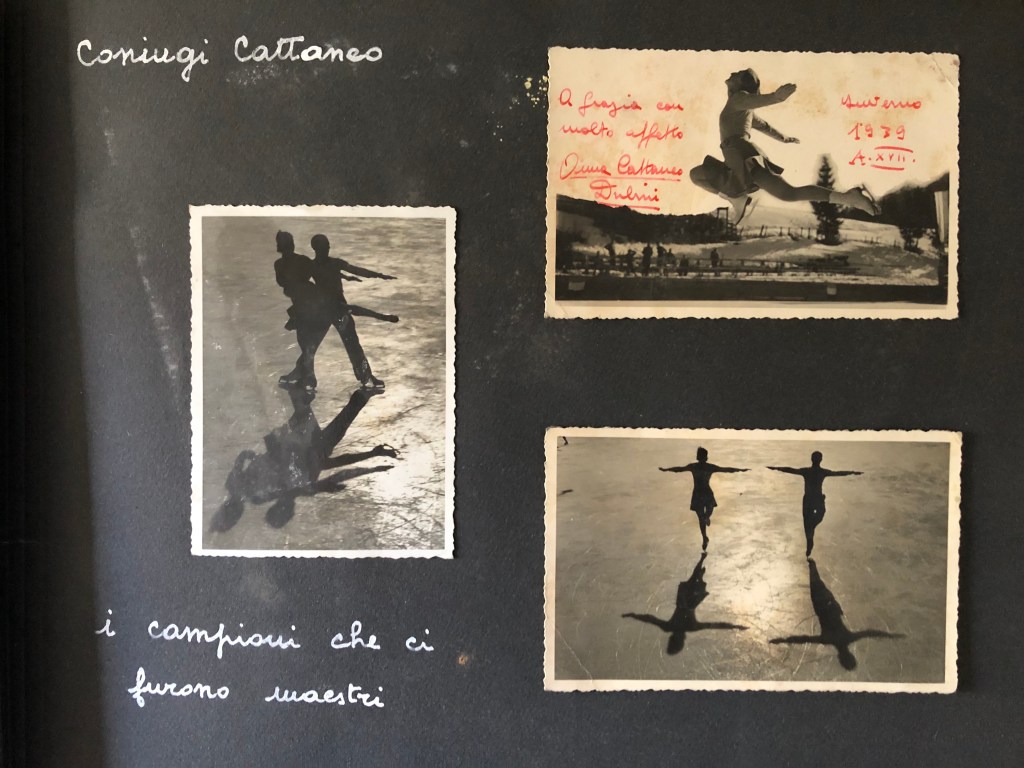 Coniugi Cattaneo
A Grazia con
molto affetto
Anna Cattaneo
Dubini
Inverno
1939
A. XVII.
i campioni che ci
furono maestri